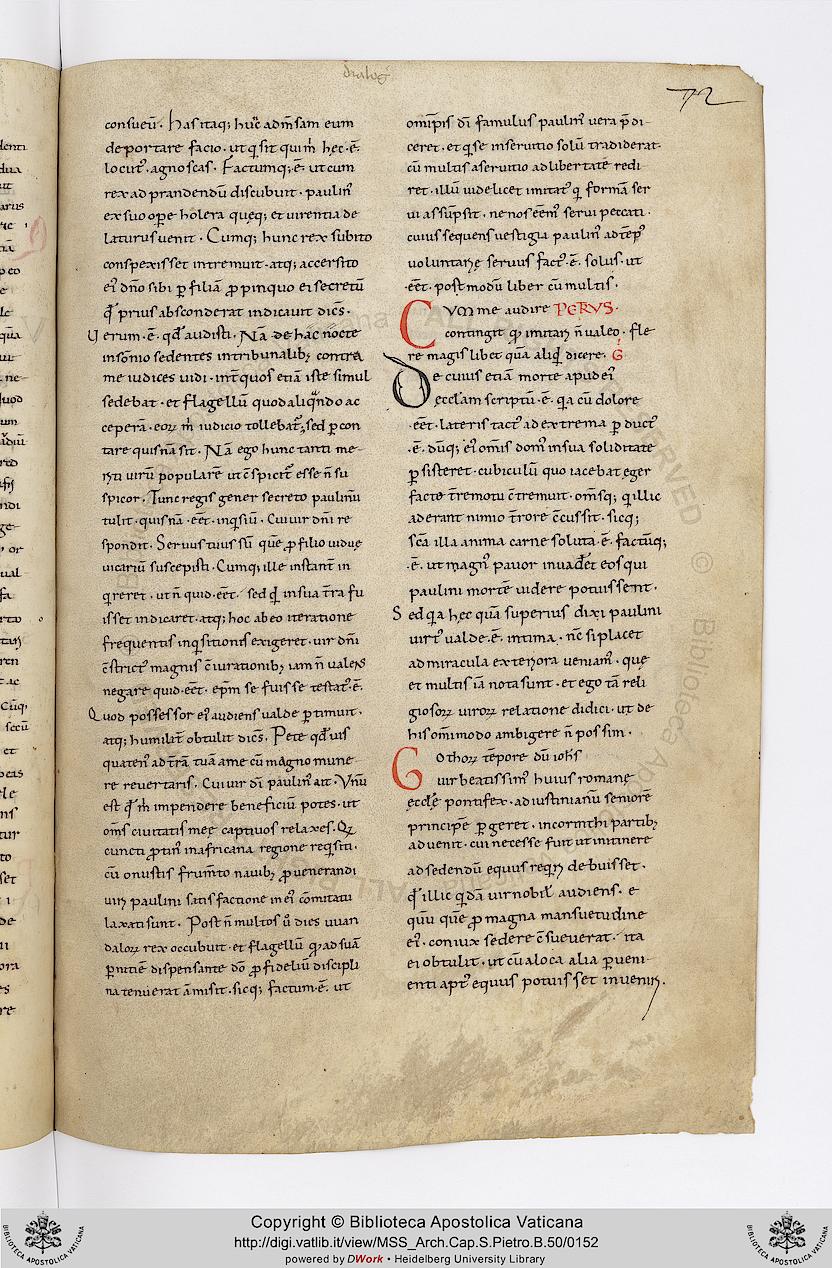 dialog̅
72
consueu̅. Has itaq; huc̅ ad m̅sam eum
deportare facio. ut q̇ sit qui m̅ hec. e̅.
locut᾽. agnoscas. Factumq; e̅. ut cum
rex ad prandendu̅ discubuit. paulin᾽
ex suo op̲e holera queq; et uirentia de
laturus uenit. Cumq; hunc rex subito
conspexisset intremuit. atq; accersito
ei᾽ dn̅o sibi p̲ filia̅ propinquo ei secretu̅
qd̅ prius absconderat indicauit dice̅s.
Uerum. e̅. qd̅ audisti. Na̅ de hac nocte
insomio sedentes in tribunalib; contra
me iudices uidi. int̅ quos etia̅ iste simul
sedebat. et flagellu̅ quod aliqn̅do ac
cepera̅. eoꝝ m̅ iudicio tollebat᾽. sed p̲con
tare quisna̅ sit. Na̅ ego hunc tanti me
riti uiru̅ populare̅ ut c̅spicit᾽ esse n̅ su
spicor. Tunc regis gener secreto paulinu̅
tulit. quisna̅. e̅et. inq̇siu̅. Cui uir dn̅i re
spondit. Seruus tuus su̅. que̅ pro filio uidue
uicariu̅ suscepisti. Cumq; ille instant̅ in
q̇reret. ut n̅ quid. e̅et. sed q̇d in sua t̅ra fu
isset indicaret. atq; hoc ab eo iteratione
frequentis inq̇sitionis exigeret. uir dn̅i
c̅strict᾽ magnis c̅iurationib; iam n̅ ualens
negare quid. e̅et. ep̅m se fuisse testat᾽. e̅.
Quod possessor ei᾽ audiens ualde p̲timuit.
atq; humilit̅ obtulit dice̅s. Pete qd̅ uis
quaten᾽ ad t̅ra̅ tua̅ a me cu̅ magno mune
re reuertaris. Cui uir dn̅i paulin᾽ ait. Vnu̅
est qd̅ m̅ impendere beneficiu̅ potes. ut
om̅s ciuitatis mee captiuos relaxes. Q;
cuncti protin᾽ in africana regione req̇siti.
cu̅ onustis frum̅to nauib; pro uenerandi
uiri paulini satisfactione in ei᾽ co̅mitatu
laxati sunt. Post n̅ multos u̅ dies uuan
daloꝝ rex occubuit. et flagellu̅ qd̅ ad sua̅
p̲nitie̅ dispensante do̅ pro fideliu̅ discipli
na tenuerat amisit. sicq; factum. e̅. ut
om̅ip̅tis di̅ famulus paulin᾽ uera p̅di
ceret. et q̇ se in seruitio solu̅ tradiderat.
cu̅ multis a seruitio ad libertate̅ redi
ret. illu̅ uidelicet imitat᾽ q̇ forma̅ ser
ui assu̅psit. ne nos e̅em᾽ serui peccati.
cuius sequens uestigia paulin᾽ ad te̅p᾽
uoluntarie seruus fact᾽. e̅. solus. ut
e̅et. postmodu̅ liber cu̅ multis.
Cvm me audire PETRVS.
contingit qd̅ imitari n̅ ualeo. fle
re magis libet qua̅ aliq̇d dicere. G̅
De cuius etia̅ morte apud ei᾽
ęcclam scriptu̅. e̅. q̇a cu̅ dolore
e̅et. lateris tact᾽ ad extrema p̲duct᾽
e̅. du̅q; ei᾽ omis dom᾽ in sua soliditate
p̲sisteret. cubiculu̅ quo iacebat eger
facto t̅remotu c̅tremuit. om̅sq; q̇ illic
aderant nimio t̅rore c̅cussit. sicq;
sc̅a illa anima carne soluta. e̅. factu̅q;
e̅. ut magn᾽ pauor inuad̅et eos qui
paulini morte̅ uidere potuissent.
Sed q̇a hec qua̅ superius dixi paulini
uirt᾽ ualde. e̅. intima. nc̅ si placet
ad miracula exteriora ueniam᾽. que
et multis ia̅ nota sunt. et ego ta̅ reli
giosoꝝ uiroꝝ relatione didici. ut de
his om̅imodo ambigere n̅ possim.
Gothoꝝ te̅pore du̅ ioh̅s
uir beatissim᾽ huius romane
ęccle̅ pontifex. ad iustinianu̅ seniore̅
principe̅ p̲geret. in corinthi partib;
aduenit. cui necesse fuit ut in itinere
ad sedendu̅ equus req̇ri debuisset.
qd̅ illic q̇da̅ uir nobil᾽ audiens. e
quu̅ que̅ pro magna mansuetudine
ei᾽. coniux sedere c̅sueuerat. ita
ei obtulit. ut cu̅ a loca alia p̲ueni
enti apt᾽ equus potuisset inueniri.
Copyright © Biblioteca Apostolica Vaticana
http://digi.vatlib.it/view/MSS_Arch.Cap.S.Pietro.B.50/0152
powered by DWork • Heidelberg University Library